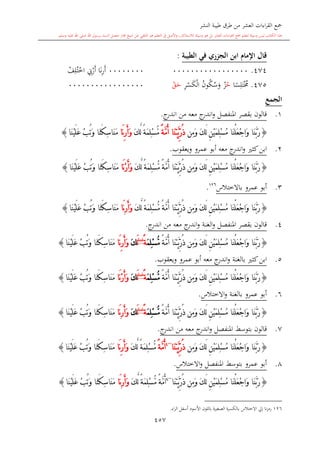 جمع القراءات العشر من طرق طيبة النشر
قال الإمام ابن الجزري في الطيبة :
٤٧٤. ................. ........ أَرِنَا أَرْنِي اخْتُلِفْ
٤٧٥. مُخْتَلِسًا حُزْ وَسُكُونُ الْكَسْرِ حَقْ .................
الجمع
١. قالون بقصر المنفصل واندرج معه من اندرج.
﴿ رَبَّنَا وَاجْعَلْنَا مُسْلِمَيْنِ لَكَ وَمِن ذُرِّيَّتِنَا أُمَّةً مُّسْلِمَةً لَّكَ وَأَرِنَا مَنَاسِكَنَا وَتُبْ عَلَيْنَا ﴾
٢. ابن كثير واندرج معه أبو عمرو ويعقوب.
﴿ رَبَّنَا وَاجْعَلْنَا مُسْلِمَيْنِ لَكَ وَمِن ذُرِّيَّتِنَا أُمَّةً مُّسْلِمَةً لَّكَ وَأَرْنَا مَنَاسِكَنَا وَتُبْ عَلَيْنَا ﴾
٣. أبو عمرو بالاختلاس١٢٦.
﴿ رَبَّنَا وَاجْعَلْنَا مُسْلِمَيْنِ لَكَ وَمِن ذُرِّيَّتِنَا أُمَّةً مُّسْلِمَةً لَّكَ وَأَرِنَا مَنَاسِكَنَا وَتُبْ عَلَيْنَا ﴾
٤. قالون بقصر المنفصل والغنة واندرج معه من اندرج.
﴿ رَبَّنَا وَاجْعَلْنَا مُسْلِمَيْنِ لَكَ وَمِن ذُرِّيَّتِنَا أُمَّةً مُّسْلِمَةً لَّكَ وَأَرِنَا مَنَاسِكَنَا وَتُبْ عَلَيْنَا ﴾
٥. ابن كثير بالغنة واندرج معه أبو عمرو ويعقوب.
﴿ رَبَّنَا وَاجْعَلْنَا مُسْلِمَيْنِ لَكَ وَمِن ذُرِّيَّتِنَا أُمَّةً مُّسْلِمَةً لَّكَ وَأَرْنَا مَنَاسِكَنَا وَتُبْ عَلَيْنَا ﴾
٦. أبو عمرو بالغنة والاختلاس.
﴿ رَبَّنَا وَاجْعَلْنَا مُسْلِمَيْنِ لَكَ وَمِن ذُرِّيَّتِنَا أُمَّةً مُّسْلِمَةً لَّكَ وَأَرِنَا مَنَاسِكَنَا وَتُبْ عَلَيْنَا ﴾
٧. قالون بتوسط المنفصل واندرج معه من اندرج.
﴿ رَبَّنَا وَاجْعَلْنَا مُسْلِمَيْنِ لَكَ وَمِن ذُرِّيَّتِنَا أُمَّةً مُّسْلِمَةً لَّكَ وَأَرِنَا مَنَاسِكَنَا وَتُبْ عَلَيْنَا ﴾
٨. أبو عمرو بتوسط المنفصل والاختلاس.
﴿ رَبَّنَا وَاجْعَلْنَا مُسْلِمَيْنِ لَكَ وَمِن ذُرِّيَّتِنَا أُمَّةً مُّسْلِمَةً لَّكَ وَأَرِنَا مَنَاسِكَنَا وَتُبْ عَلَيْنَا ﴾
١٢٦ رمزنا إلى الاختلاس بالكسرة الصغيرة باللون الأسود أسفل الراء.
٤٥٧